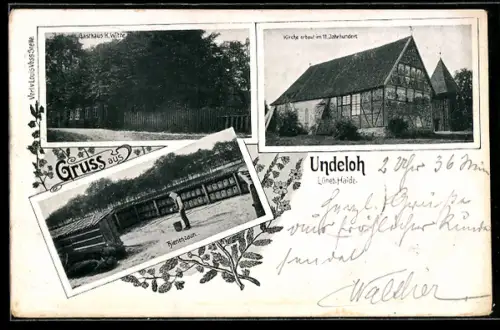 Verl. v. Louis Vass Sreke
Gasthaus H. Witte.
Kirche erbaut im 11. Jahrhundert.
Gruss aus
Undeloh
Lüneb. Haide.
Bienenzaun.
2 Uhr 36 Min
Herzl. Grüße
aus fröhlicher Runde
sendet
Walther